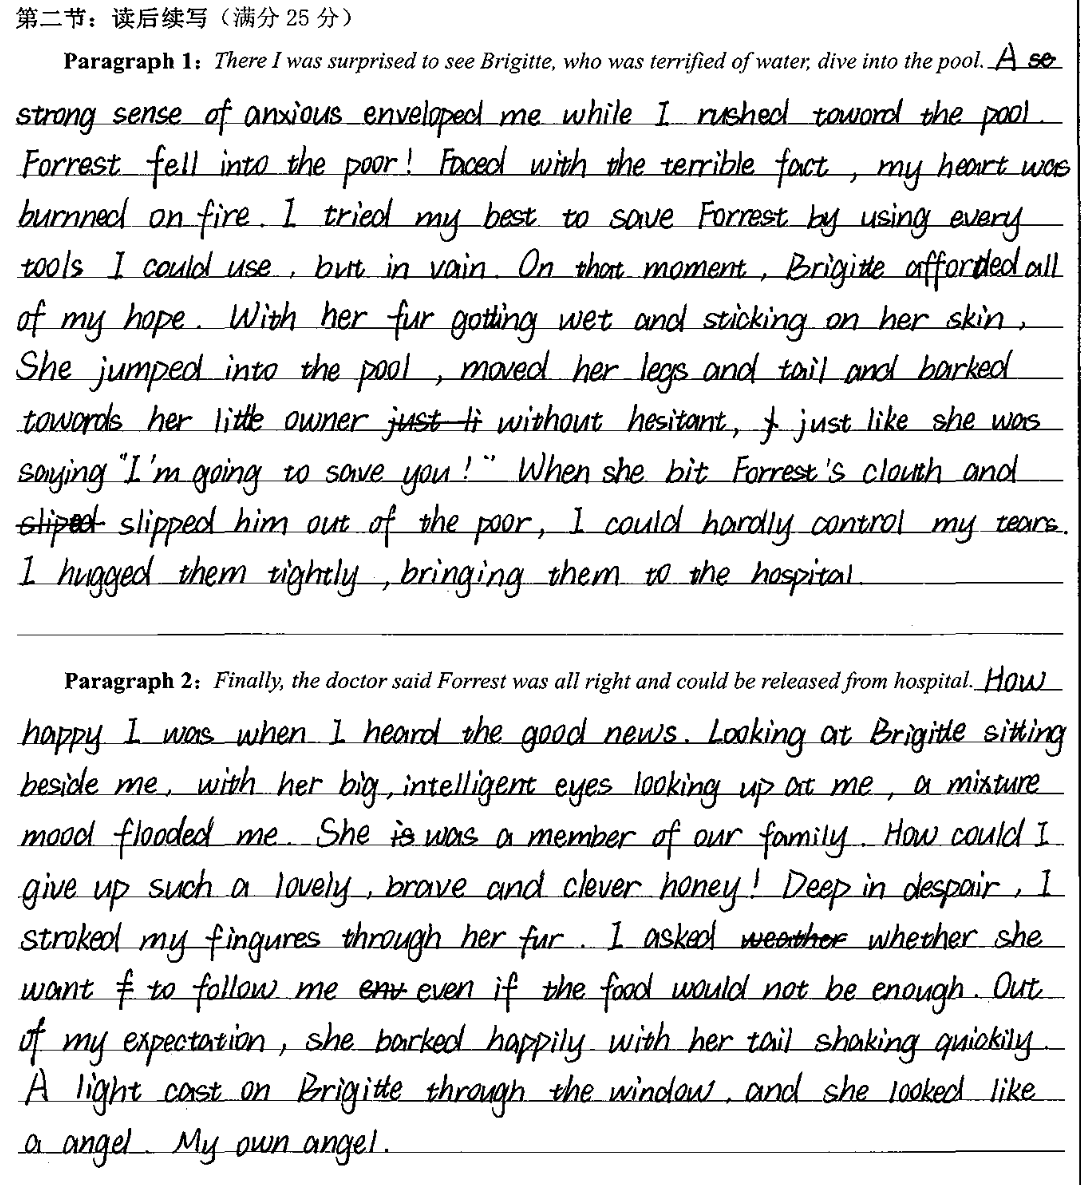 第二节：读后续写（满分 25 分）
Paragraph 1: There I was surprised to see Brigitte, who was terrified of water, dive into the pool. A se
strong sense of anxious enveloped me while I rushed toword the pool.
Forrest fell into the poor! Faced with the terrible fact, my heart was
burnned on fire. I tried my best to save Forrest by using every
tools I could use, but in vain. On that moment, Brigitte afforded all
of my hope. With her fur gotting wet and sticking on her skin,
She jumped into the pool, moved her legs and tail and barked
towards her little owner just li without hesitant, just like she was
saying "I'm going to save you!" When she bit Forrest's clouth and
sliped slipped him out of the poor, I could hardly control my tears.
I hugged them tightly, bringing them to the hospital.
Paragraph 2: Finally, the doctor said Forrest was all right and could be released from hospital. How
happy I was when I heard the good news. Looking at Brigitte sitting
beside me, with her big, intelligent eyes looking up at me, a mixture
mood flooded me. She is was a member of our family. How could I
give up such a lovely, brave and clever honey! Deep in despair, I
stroked my fingures through her fur. I asked weather whether she
want f to follow me env even if the food would not be enough. Out
of my expectation, she barked happily with her tail shaking quickily.
A light cast on Brigitte through the window, and she looked like
a angel. My own angel.